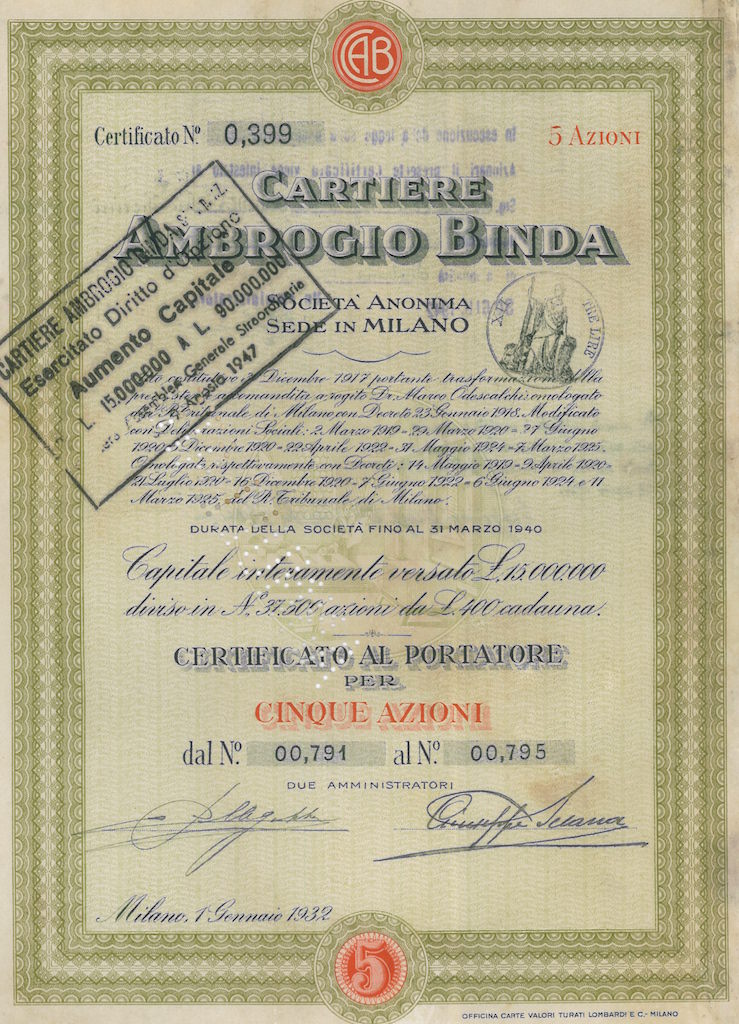 CAB
Certificato Nº 0,399
5 AZIONI
CARTIERE
AMBROGIO BINDA
SOCIETÀ ANONIMA
SEDE IN MILANO
TRE LIRE
CARTIERE AMBROGIO BINDA
Esercitato Diritto d'Opzione
Aumento Capitale
L. 15.000.000 A L. 90.000.000
Assemblea Generale Straordinaria
1947
Dicembre 1917 portante trasformazione della
accomandita a rogito Dr. Marco Odescalchi: omologato
Tribunale di Milano con Decreto 23 Gennaio 1918. Modificato
con Deliberazioni Sociali: 2 Marzo 1919=29 Marzo 1920=27 Giugno
1920=5 Dicembre 1920=22 Aprile 1922=31 Maggio 1924=7 Marzo 1925.
Omologate rispettivamente con Decreti: 14 Maggio 1919=9 Aprile 1920=
21 Luglio 1920=16 Dicembre 1920=7 Giugno 1922=6 Giugno 1924 e 11
Marzo 1925, del R. Tribunale di Milano.
DURATA DELLA SOCIETÀ FINO AL 31 MARZO 1940
Capitale interamente versato L. 15.000.000
diviso in N. 37.500 azioni da L. 400 cadauna.
CERTIFICATO AL PORTATORE
PER
CINQUE AZIONI
dal Nº. 00,791 al Nº. 00,795
DUE AMMINISTRATORI
Giuseppe
Milano, 1 Gennaio 1932
5
OFFICINA CARTE VALORI TURATI LOMBARDI E C.- MILANO